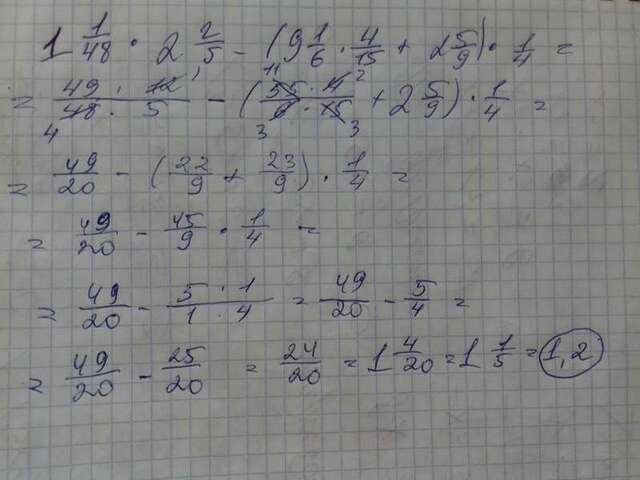 1 1/48 · 2 2/5 - (9 1/6 · 4/15 + 2 5/9) · 1/4 =
= 49 · 12 / 48 · 5 - (55 · 4 / 6 · 15 + 2 5/9) · 1/4 =
= 49/20 - (22/9 + 23/9) · 1/4 =
= 49/20 - 45/9 · 1/4 =
= 49/20 - 5 · 1 / 1 · 4 = 49/20 - 5/4 =
= 49/20 - 25/20 = 24/20 = 1 4/20 = 1 1/5 = 1,2